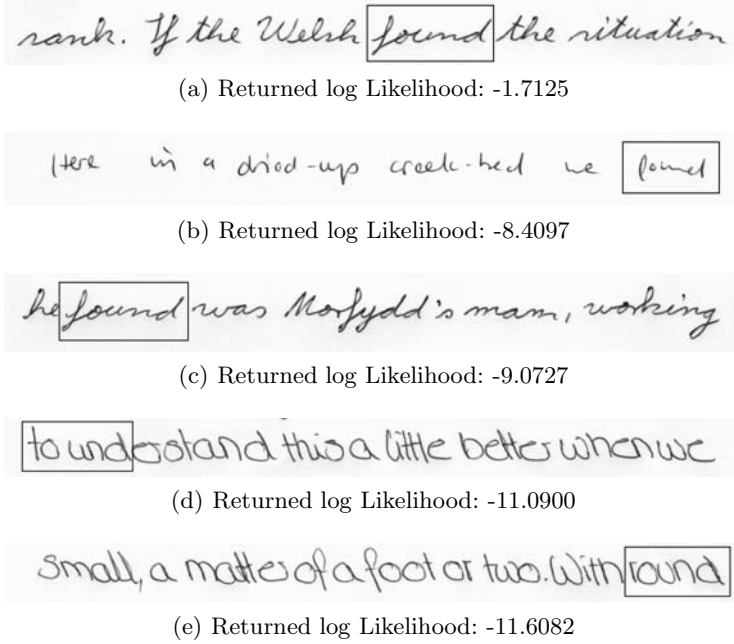 rank. If the Welsh found the situation
(a) Returned log Likelihood: -1.7125
Here in a dried-up creek-bed we found
(b) Returned log Likelihood: -8.4097
he found was Morfydd's mam, working
(c) Returned log Likelihood: -9.0727
to understand this a little better when we
(d) Returned log Likelihood: -11.0900
small, a matter of a foot or two. With round
(e) Returned log Likelihood: -11.6082